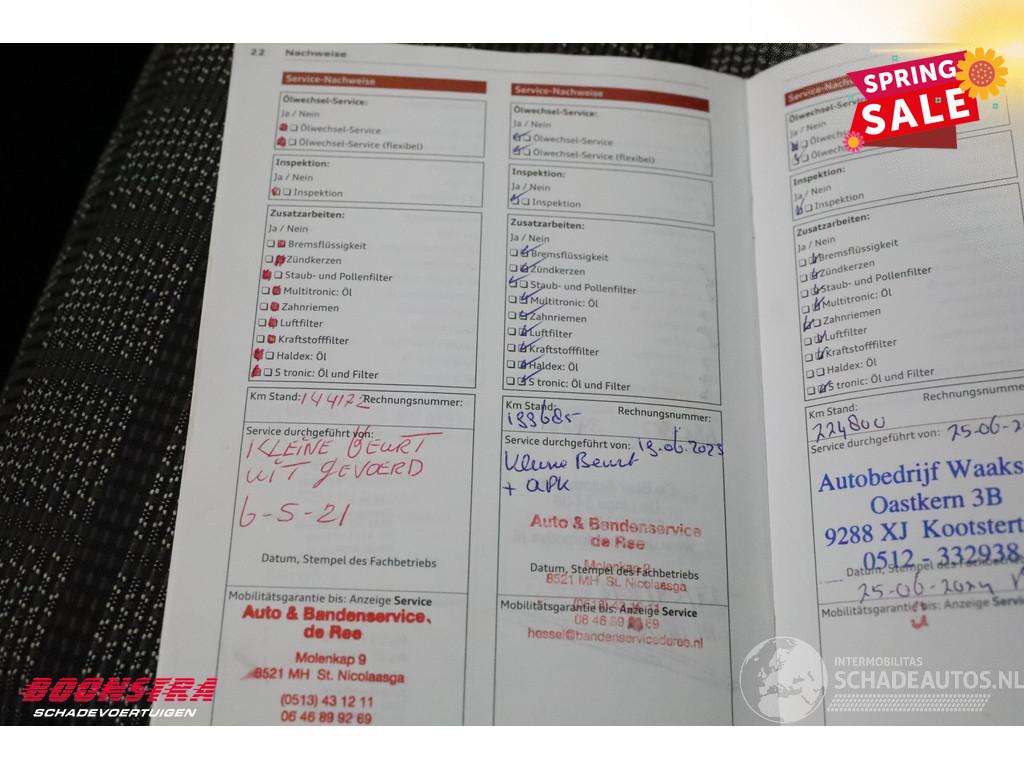 SPRING
SALE
22 Nachweise
Service-Nachweise
Ölwechsel-Service:
Ja / Nein
Ölwechsel-Service
Ölwechsel-Service (flexibel)
Inspektion:
Ja / Nein
Inspektion
Zusatzarbeiten:
Ja / Nein
Bremsflüssigkeit
Zündkerzen
Staub- und Pollenfilter
Multitronic: Öl
Zahnriemen
Luftfilter
Kraftstofffilter
Haldex: Öl
S tronic: Öl und Filter
Km Stand: 144172 Rechnungsnummer:
Service durchgeführt von:
KLEINE BEURT
UIT GEVOERD
6-5-21
Datum, Stempel des Fachbetriebs
Mobilitätsgarantie bis: Anzeige Service
Auto & Bandenservice
de Ree
Molenkap 9
8521 MH St. Nicolaasga
(0513) 43 12 11
06 46 89 92 69
Service-Nachweise
Ölwechsel-Service:
Ja / Nein
Ölwechsel-Service
Ölwechsel-Service (flexibel)
Inspektion:
Ja / Nein
Inspektion
Zusatzarbeiten:
Ja / Nein
Bremsflüssigkeit
Zündkerzen
Staub- und Pollenfilter
Multitronic: Öl
Zahnriemen
Luftfilter
Kraftstofffilter
Haldex: Öl
S tronic: Öl und Filter
Km Stand: Rechnungsnummer:
199685
Service durchgeführt von: 19.06.2023
Kleine Beurt
+ APK
Auto & Bandenservice
de Ree
Molenkap 9
Datum, Stempel des Fachbetriebs
8521 MH St. Nicolaasga
Mobilitätsgarantie bis: Anzeige Service
hessel@bandenservicederee.nl
Service-Nach
Ölwechsel-Servi
Ja / Nein
Ölwechs
Ölwech
Inspektion:
Ja / Nein
Inspektion
Zusatzarbeiten:
Ja / Nein
Bremsflüssigkeit
Zündkerzen
Staub- und Pollenfilter
Multitronic: Öl
Zahnriemen
Luftfilter
Kraftstofffilter
Haldex: Öl
S tronic: Öl und Filter
Km Stand: Rechnungsnumme
224800
Service durchgeführt von: 25-06-2
Autobedrijf Waaks
Oastkern 3B
9288 XJ Kootstert
0512 - 332938
Datum, Stempel des Fachbe
25-06-2024
Mobilitätsgarantie bis: Anzeige Servi
BOONSTRA
SCHADEVOERTUIGEN
INTERMOBILITAS
SCHADEAUTOS.NL